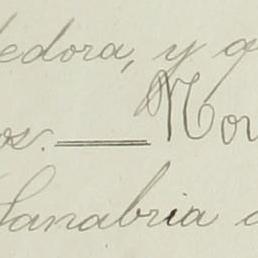 edora, y q
os. ═══ Nov
Sanabria a